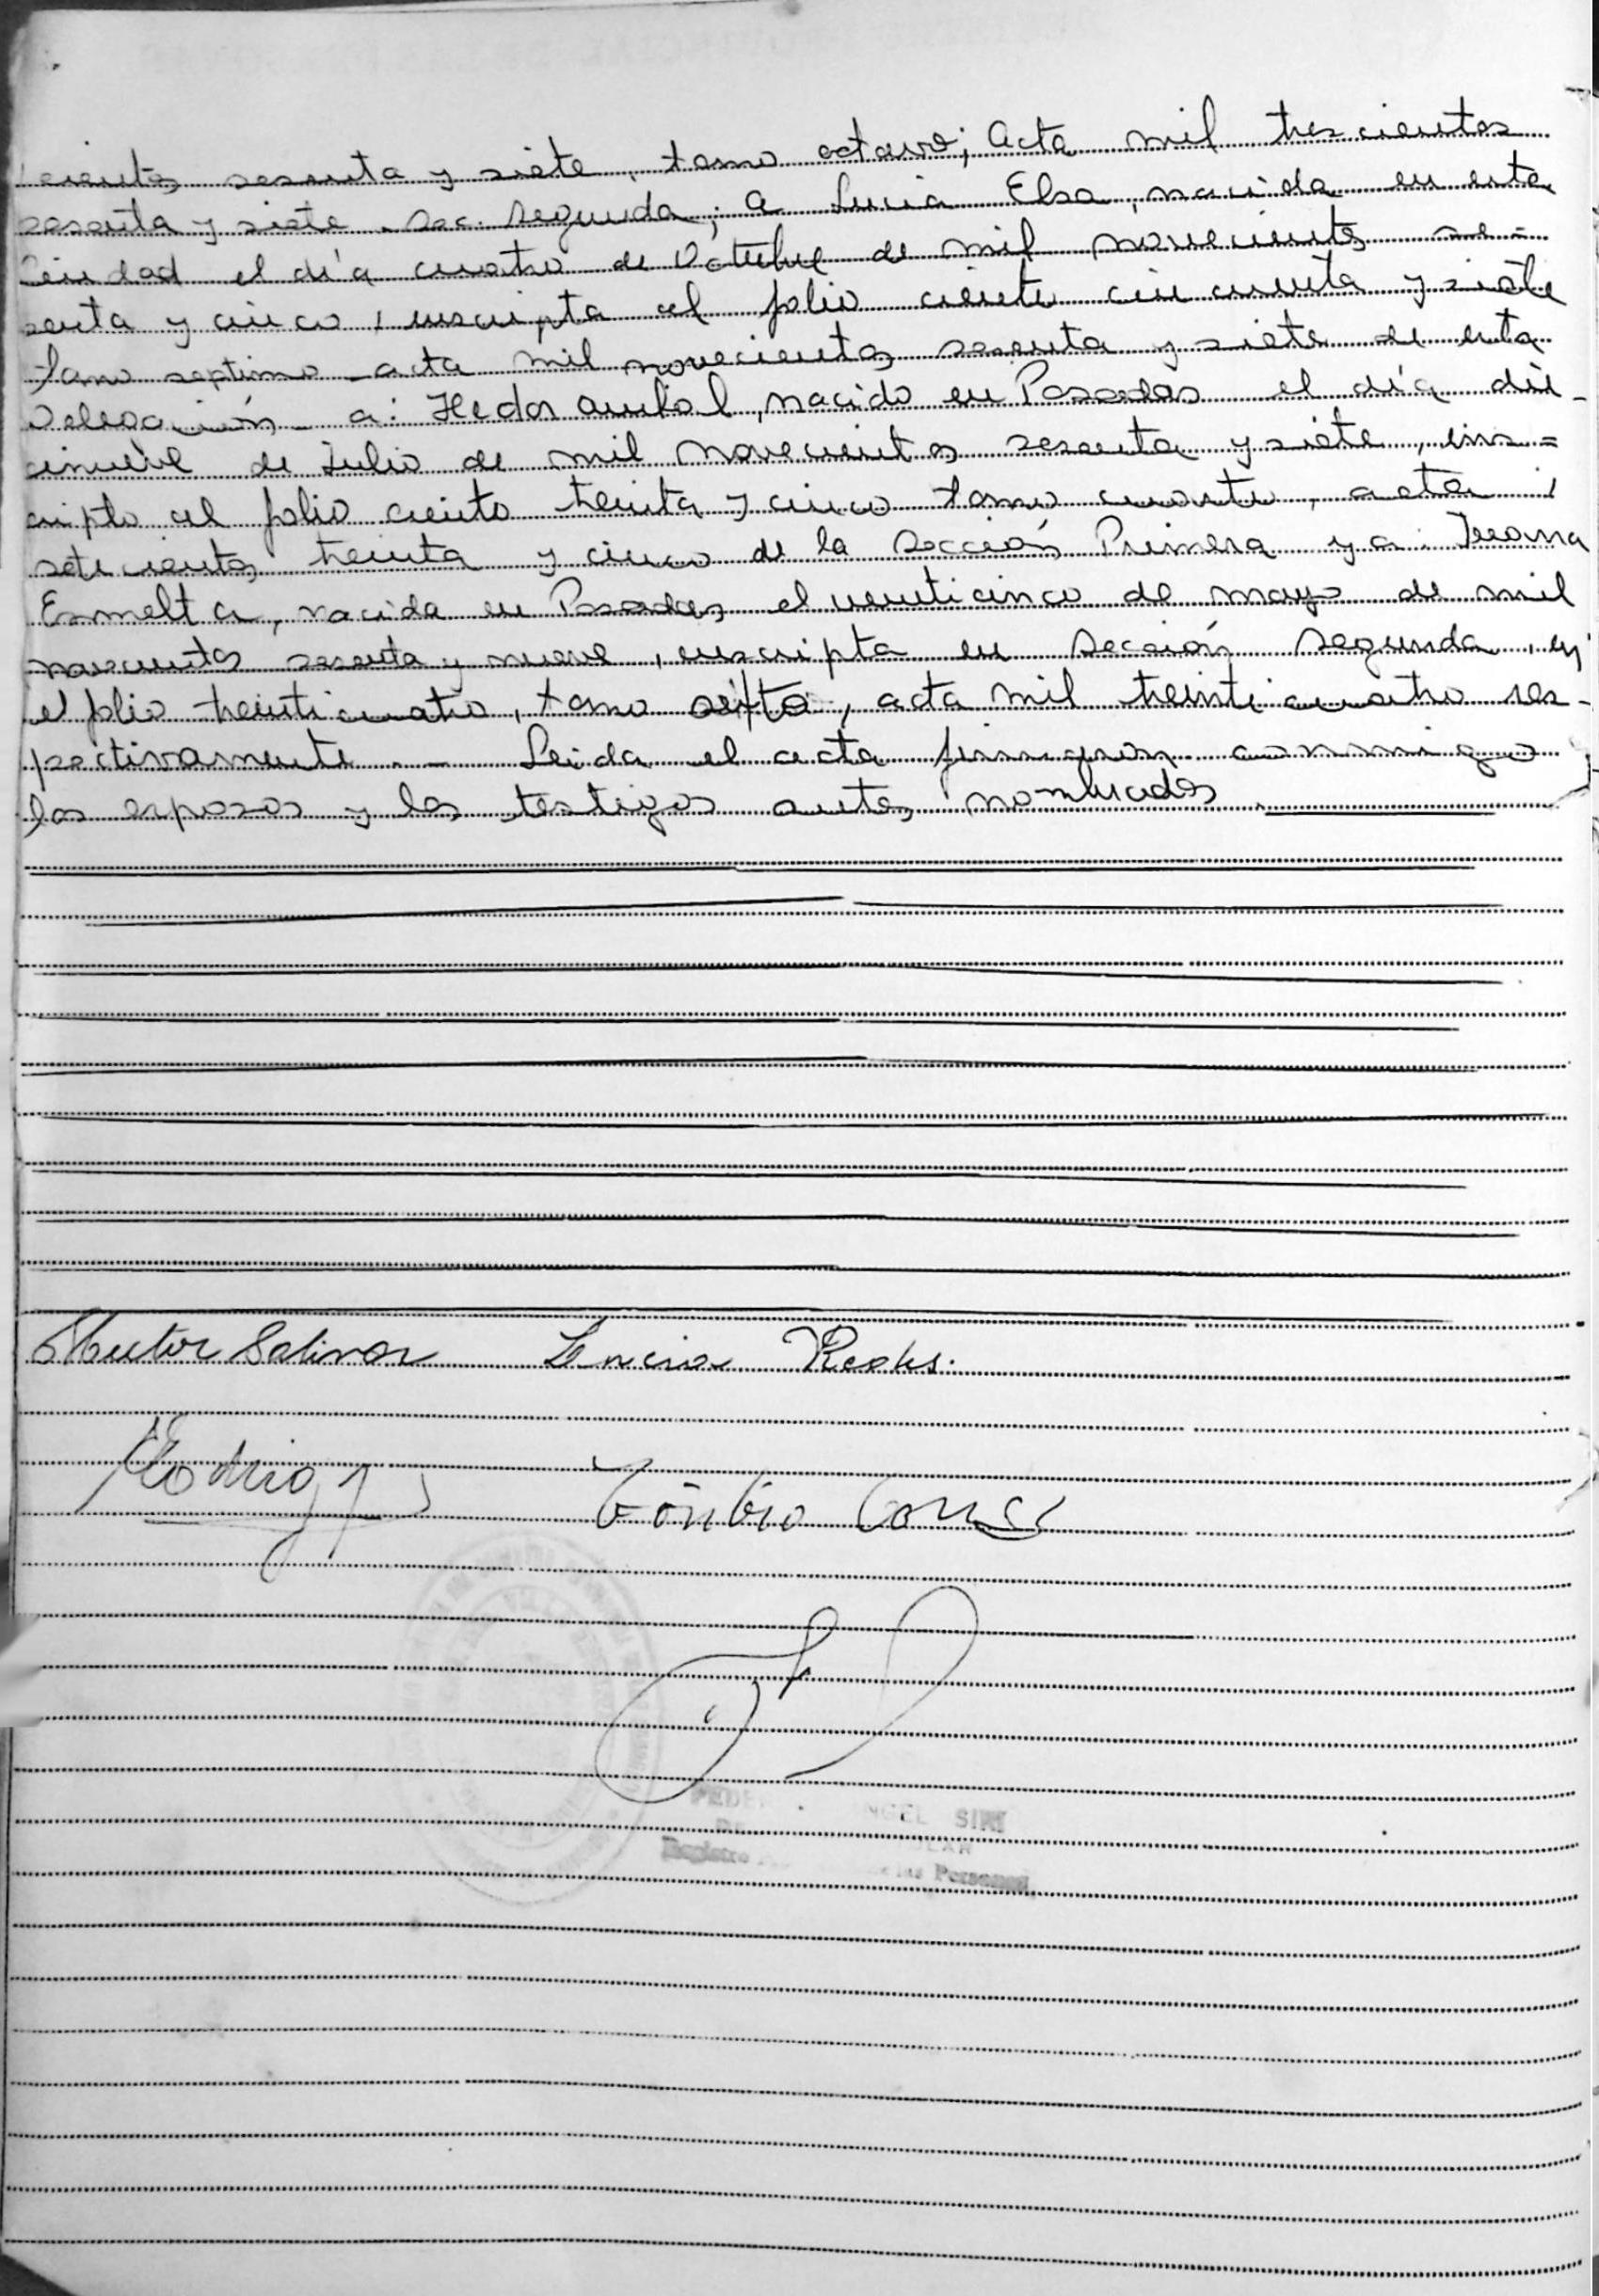 cientos sesenta y siete, tomo octavo; Acta mil trescientos
sesenta y siete. Sec. segunda; a Lucia Elsa, nacida en esta
Ciudad el día cuatro de Octubre de mil novecientos se=
senta y cinco, inscripta al folio ciento cincuenta y siete
tomo septimo acta mil novecientos sesenta y siete de esta
Delegación a: Hector Anibal, nacido en Posadas el día die-
cinueve de Julio de mil novecientos sesenta y siete, ins=
cripto al folio ciento treinta y cinco tomo cuarto, acta
setecientos treinta y cinco de la Sección Primera y a: Juana
Esmelta, nacida en Posadas el veinticinco de mayo de mil
novecientos sesenta y nueve, inscripta en Sección segunda, en
el folio treinticuatro, tomo sexto, acta mil treinticuatro res-
pectivamente. - Leida el acta firmaron conmigo
los esposos y los testigos antes nombrados
Hector Salinas Lucia
Toribio
NGEL SIRI
Registro las Personas